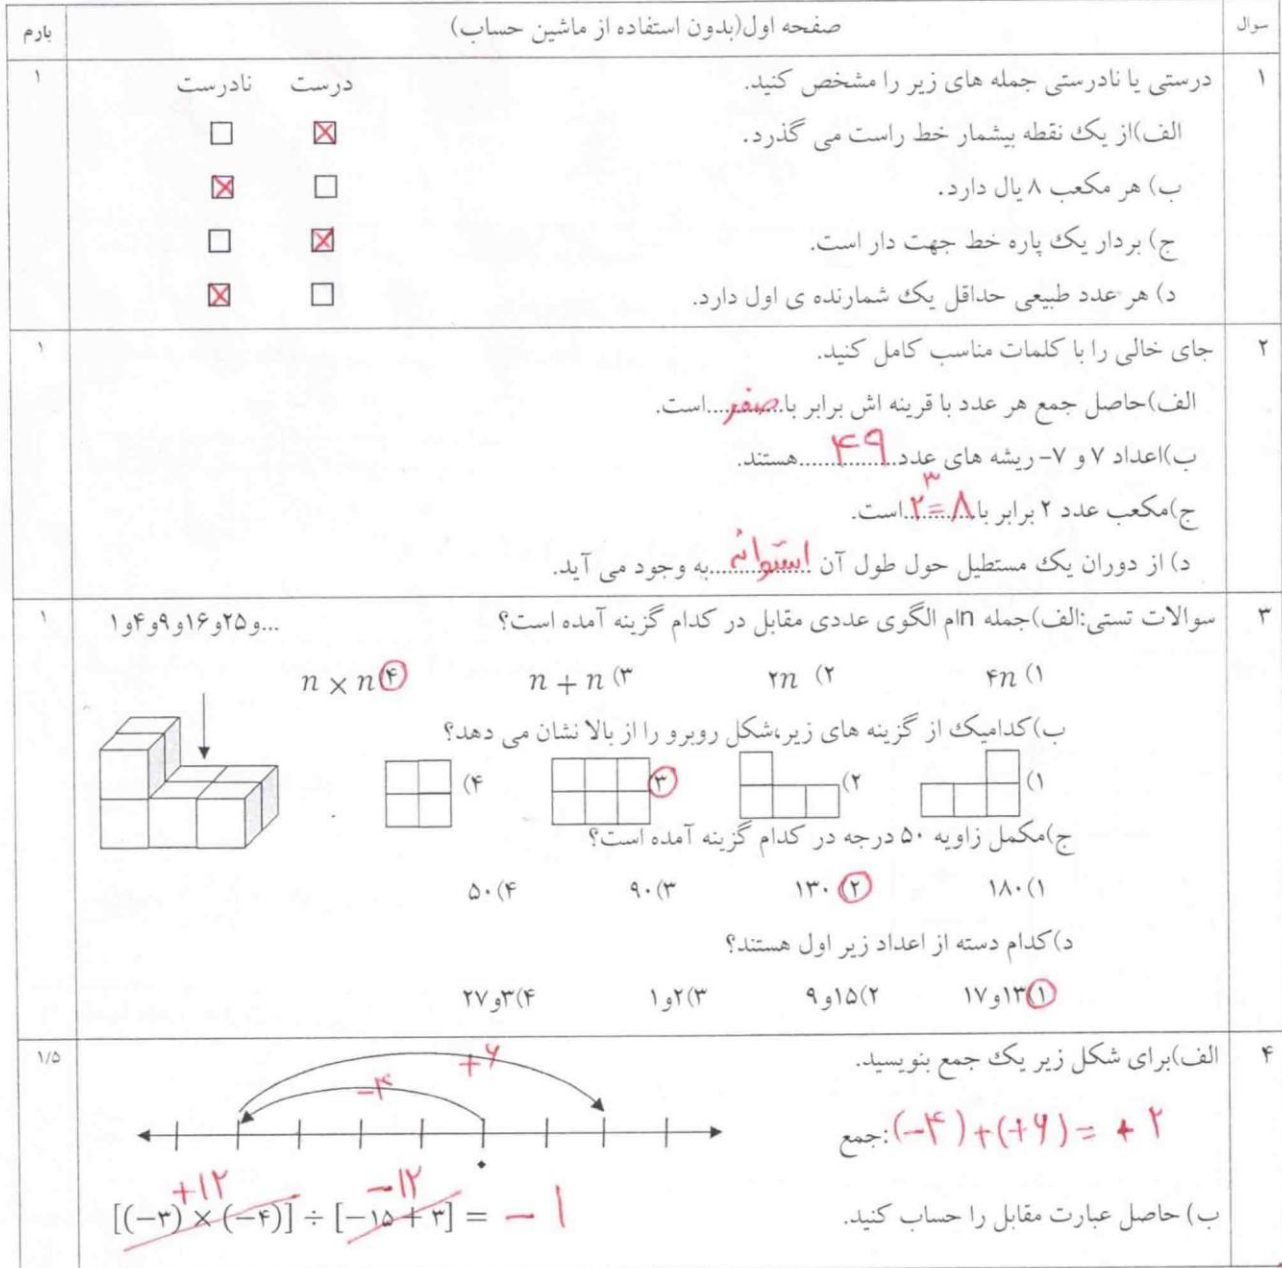 سوال صفحه اول(بدون استفاده از ماشین حساب) بارم
۱ درستی یا نادرستی جمله های زیر را مشخص کنید. درست نادرست ۱
الف)از یک نقطه بیشمار خط راست می گذرد.
ب) هر مکعب ۸ یال دارد.
ج) بردار یک پاره خط جهت دار است.
د) هر عدد طبیعی حداقل یک شمارنده ی اول دارد.
۲ جای خالی را با کلمات مناسب کامل کنید. ۱
الف)حاصل جمع هر عدد با قرینه اش برابر با......صفر......است.
ب)اعداد ۷ و ۷- ریشه های عدد......۴۹......هستند.
ج)مکعب عدد ۲ برابر با...۲^۳=۸...است.
د) از دوران یک مستطیل حول طول آن ...استوانه...به وجود می آید.
۳ سوالات تستی:الف)جمله nام الگوی عددی مقابل در کدام گزینه آمده است؟ ...و۲۵و۱۶و۹و۴و۱ ۱
۱) ۴n ۲) ۲n ۳) n + n ۴ n × n
ب)کدامیک از گزینه های زیر،شکل روبرو را از بالا نشان می دهد؟
۱) ۲) ۳ ۴)
ج)مکمل زاویه ۵۰ درجه در کدام گزینه آمده است؟
۱)۱۸۰ ۲)۱۳۰ ۳)۹۰ ۴)۵۰
د)کدام دسته از اعداد زیر اول هستند؟
۱)۱۳و۱۷ ۲)۱۵و۹ ۳)۲و۱ ۴)۳و۲۷
۴ الف)برای شکل زیر یک جمع بنویسید. ۱/۵
+۶
-۴
جمع: (-۴)+(+۶) = +۲
+۱۲ -۱۲
ب) حاصل عبارت مقابل را حساب کنید. [(-۳) × (-۴)] ÷ [-۱۵ + ۳] = -۱